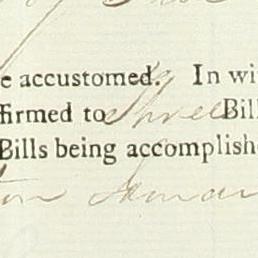 e accustomed. In wi
firmed to three Bill
Bills being accomplish